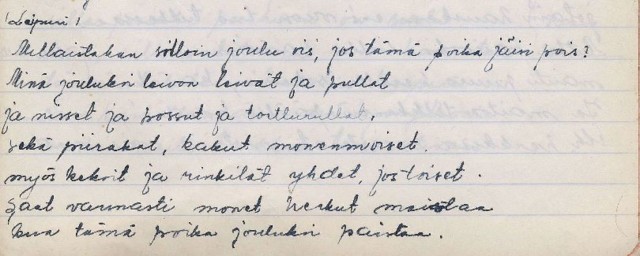 (Leipuri)
Millaistakan silloin joulu ois, jos tämä poika jäisi pois?
Minä jouluksi leivon leivät ja pullat
ja nisset ja possut ja tortturullat,
sekä piirakat, kakut monenmoiset.
myös keksit ja rinkilät yhdet, jos toiset.
Saat varmasti monet herkut maistaa
kun tämä poika jouluksi paistaa.